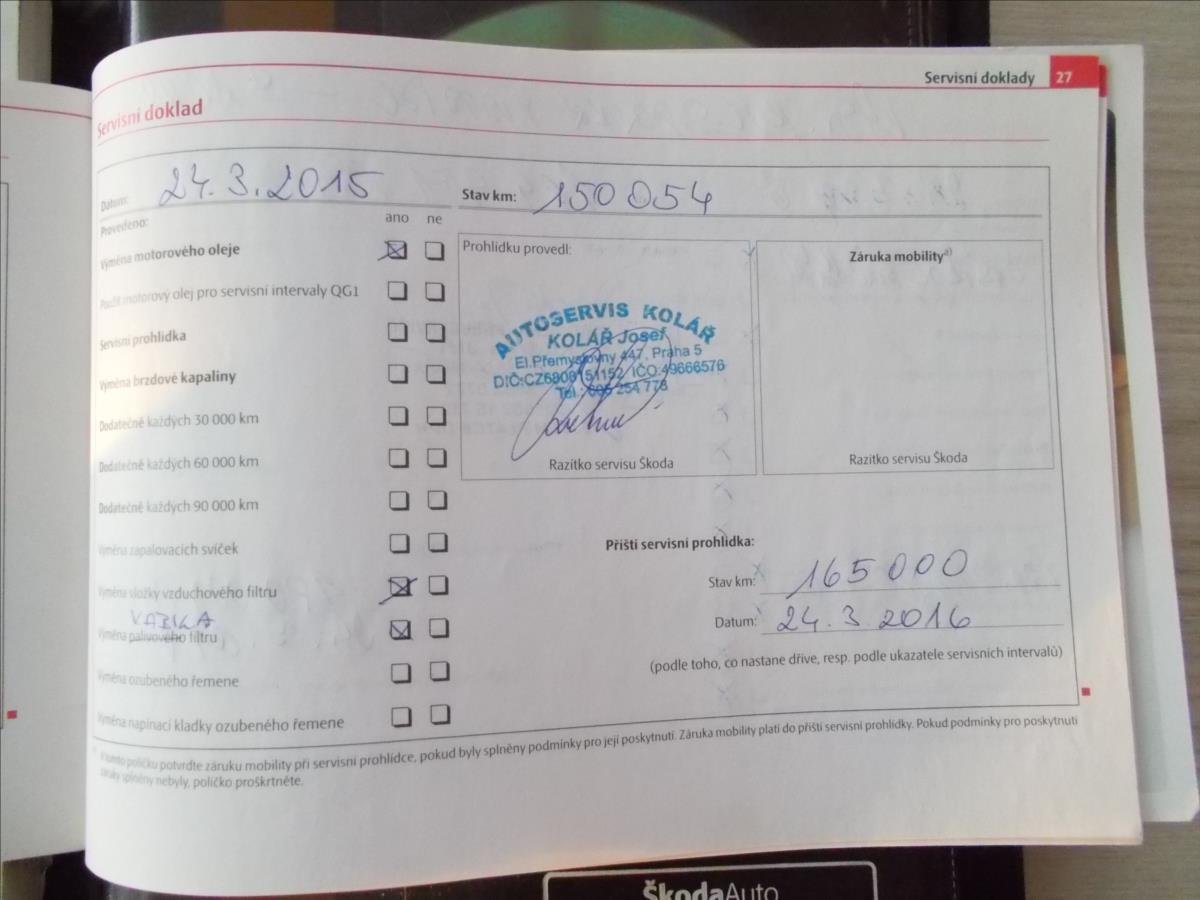 Servisní doklady 27
Servisní doklad
Datum: 24.3.2015
Stav km: 150 054
Provedeno: ano ne
Výměna motorového oleje
Použit motorový olej pro servisní intervaly QG1
Servisní prohlídka
Výměna brzdové kapaliny
Dodatečně každých 30 000 km
Dodatečně každých 60 000 km
Dodatečně každých 90 000 km
Výměna zapalovacích svíček
Výměna vložky vzduchového filtru
Výměna palivového filtru
Výměna ozubeného řemene
Výměna napínací kladky ozubeného řemene
Prohlídku provedl:
AUTOSERVIS KOLÁŘ
KOLÁŘ Josef
El.Přemyslovny 447, Praha 5
DIČ:CZ6808151152 IČO:49666576
Tel.: 605 254 778
Razítko servisu Škoda
Záruka mobility a)
Razítko servisu Škoda
Příští servisní prohlídka:
Stav km: 165 000
Datum: 24.3.2016
(podle toho, co nastane dříve, resp. podle ukazatele servisních intervalů)
V tomto políčku potvrďte záruku mobility při servisní prohlídce, pokud byly splněny podmínky pro její poskytnutí. Záruka mobility platí do příští servisní prohlídky. Pokud podmínky pro poskytnutí
záruky splněny nebyly, políčko proškrtněte.
ŠkodaAuto